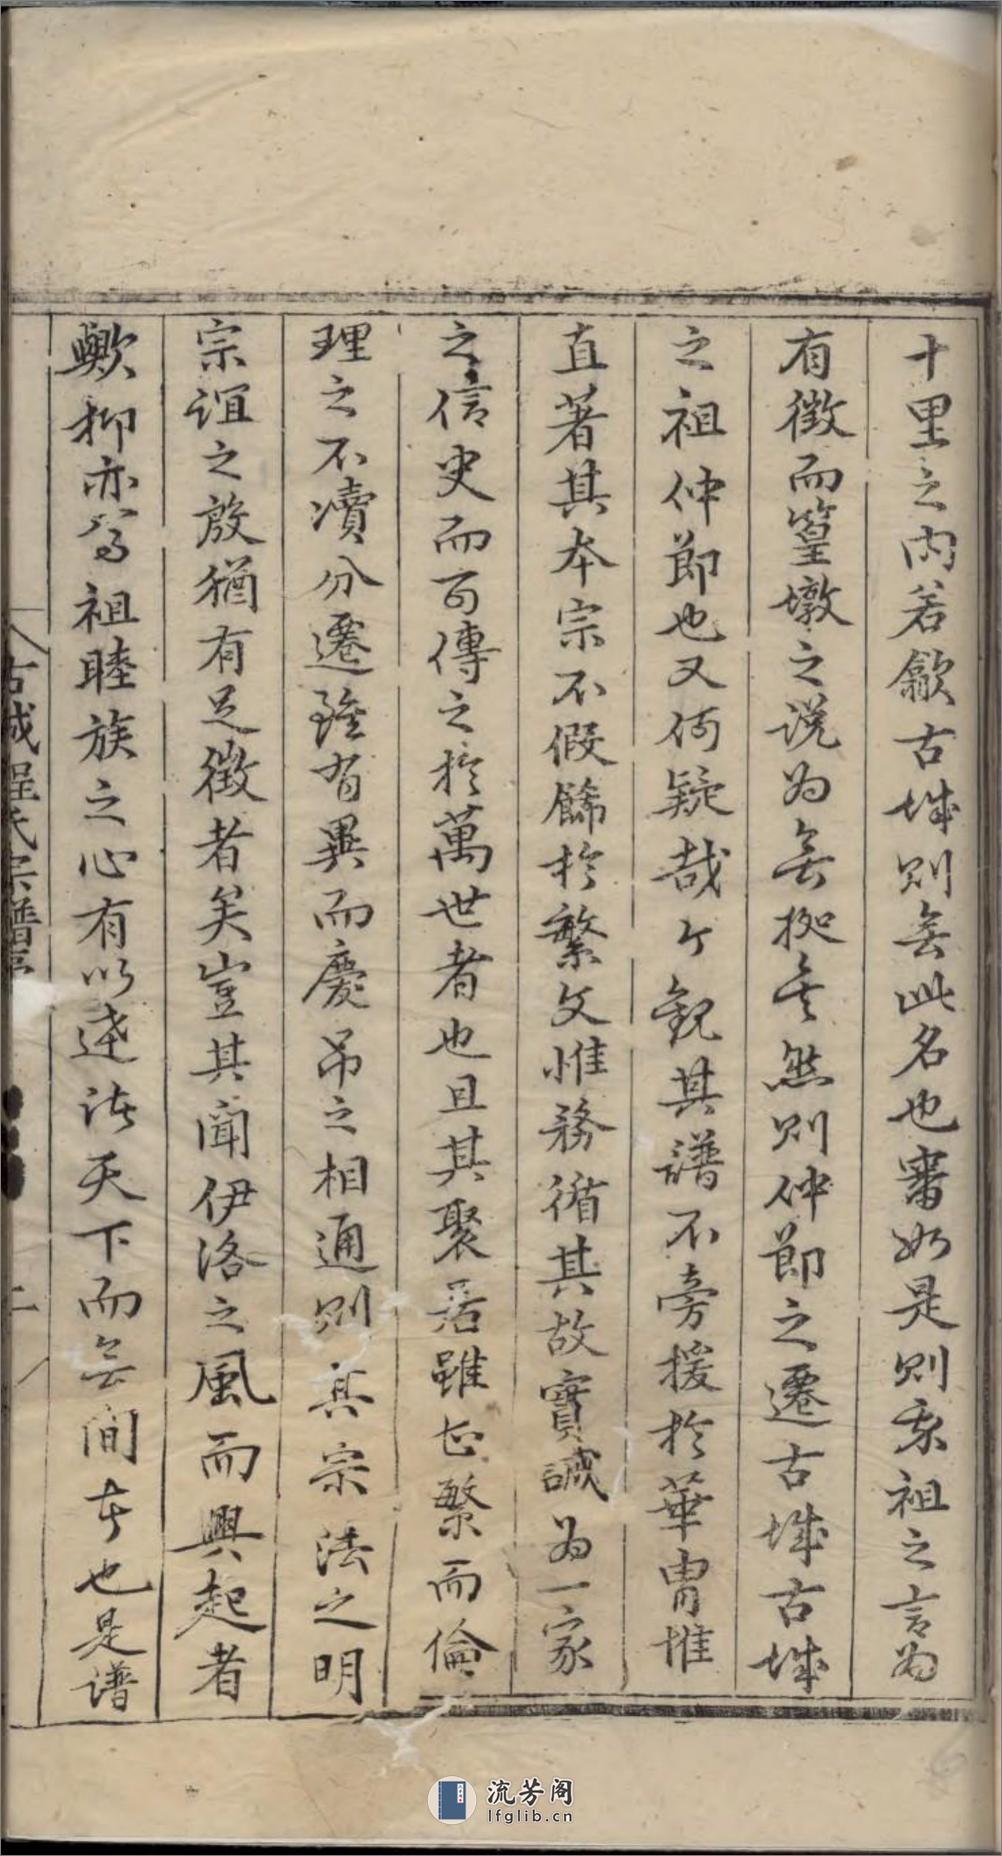 十里之內若歙古城則無此名也審如是則系祖之言為
有徵而篁墩之說為無據矣然則仲節之遷古城古城
之祖仲節也又何疑哉今觀其譜不旁援於華胄惟
直著其本宗不假餙於繁文惟務循其故實誠為一家
之信史而可傳之於萬世者也且其聚居雖甚繁而倫
理之不瀆分遷雖有異而慶吊之相通則其宗法之明
宗誼之殷猶有足徵者矣豈其聞伊洛之風而興起者
歟抑亦尊祖睦族之心有以達諸天下而無間者也是譜
古城程氏宗譜序
二
流芳阁
lfglib.cn